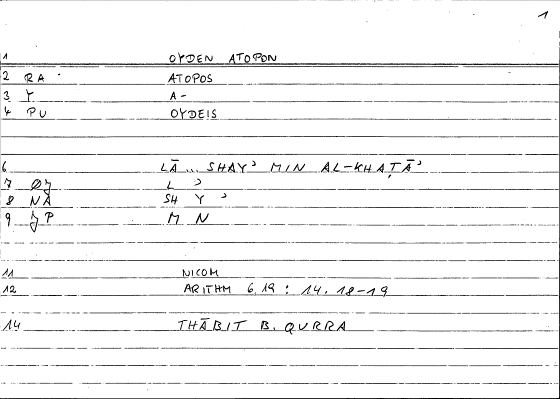 1
1 OYDEN ATOPON
2 RA ATOPOS
3 Y A-
4 PU OYDEIS
6 LĀ ... SHAYʾ MIN AL-KHAṬĀʾ
7 ØJ L ʾ
8 NA SH Y ʾ
9 JP M N
11 NICOM
12 ARITHM 6.19 : 14.18-19
14 THĀBIT B. QURRA